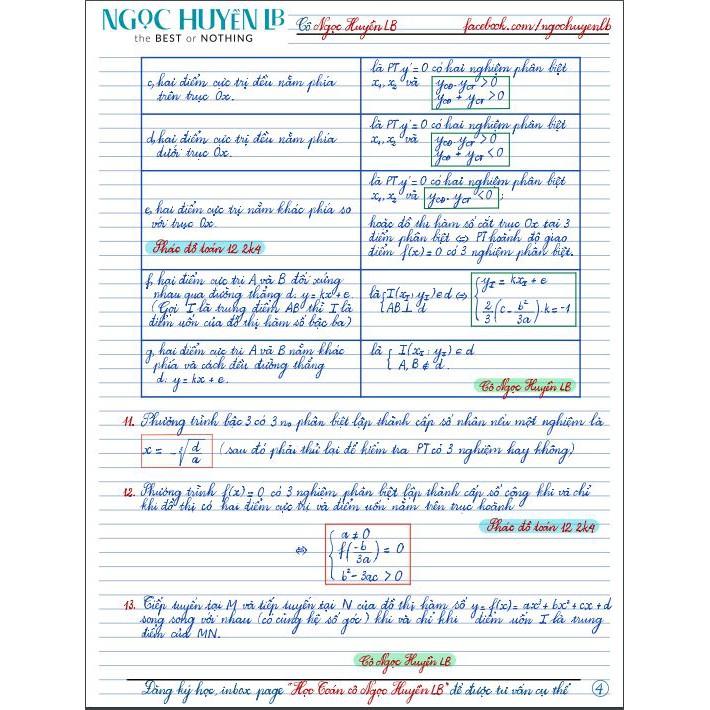 NGỌC HUYỀN LB
the BEST or NOTHING
Cô Ngọc Huyền LB
facebook.com/ngochuyenlb
c, hai điểm cực trị đều nằm phía
trên trục Ox.
là PT y' = 0 có hai nghiệm phân biệt
x₁, x₂ và { y_CĐ . y_CT > 0
y_CĐ + y_CT > 0
d, hai điểm cực trị đều nằm phía
dưới trục Ox.
là PT y' = 0 có hai nghiệm phân biệt
x₁, x₂ và { y_CĐ . y_CT > 0
y_CĐ + y_CT < 0
e, hai điểm cực trị nằm khác phía so
với trục Ox.
Phác đồ toán 12 2k4
là PT y' = 0 có hai nghiệm phân biệt
x₁, x₂ và y_CĐ . y_CT < 0 ;
hoặc đồ thị hàm số cắt trục Ox tại 3
điểm phân biệt ⇔ PT hoành độ giao
điểm f(x) = 0 có 3 nghiệm phân biệt.
f, hai điểm cực trị A và B đối xứng
nhau qua đường thẳng d: y = kx + e
(Gọi I là trung điểm AB thì I là
điểm uốn của đồ thị hàm số bậc ba)
là { I(x_I ; y_I) ∈ d ⇔ { y_I = kx_I + e
AB ⊥ d
2/3 (c - b²/3a) . k = -1
g, hai điểm cực trị A và B nằm khác
phía và cách đều đường thẳng
d: y = kx + e.
là { I(x_I ; y_I) ∈ d
A, B ∉ d.
Cô Ngọc Huyền LB
11. Phương trình bậc 3 có 3 n₀ phân biệt lập thành cấp số nhân nếu một nghiệm là
x = -∛(d/a) (sau đó phải thử lại để kiểm tra PT có 3 nghiệm hay không)
12. Phương trình f(x) = 0 có 3 nghiệm phân biệt lập thành cấp số cộng khi và chỉ
khi đồ thị có hai điểm cực trị và điểm uốn nằm trên trục hoành
Phác đồ toán 12 2k4
⇔ { a ≠ 0
f(-b/3a) = 0
b² - 3ac > 0
13. Tiếp tuyến tại M và tiếp tuyến tại N của đồ thị hàm số y = f(x) = ax³ + bx² + cx + d
song song với nhau (có cùng hệ số góc) khi và chỉ khi điểm uốn I là trung
điểm của MN.
Cô Ngọc Huyền LB
Đăng ký học, inbox page "Học Toán cô Ngọc Huyền LB" để được tư vấn cụ thể
4